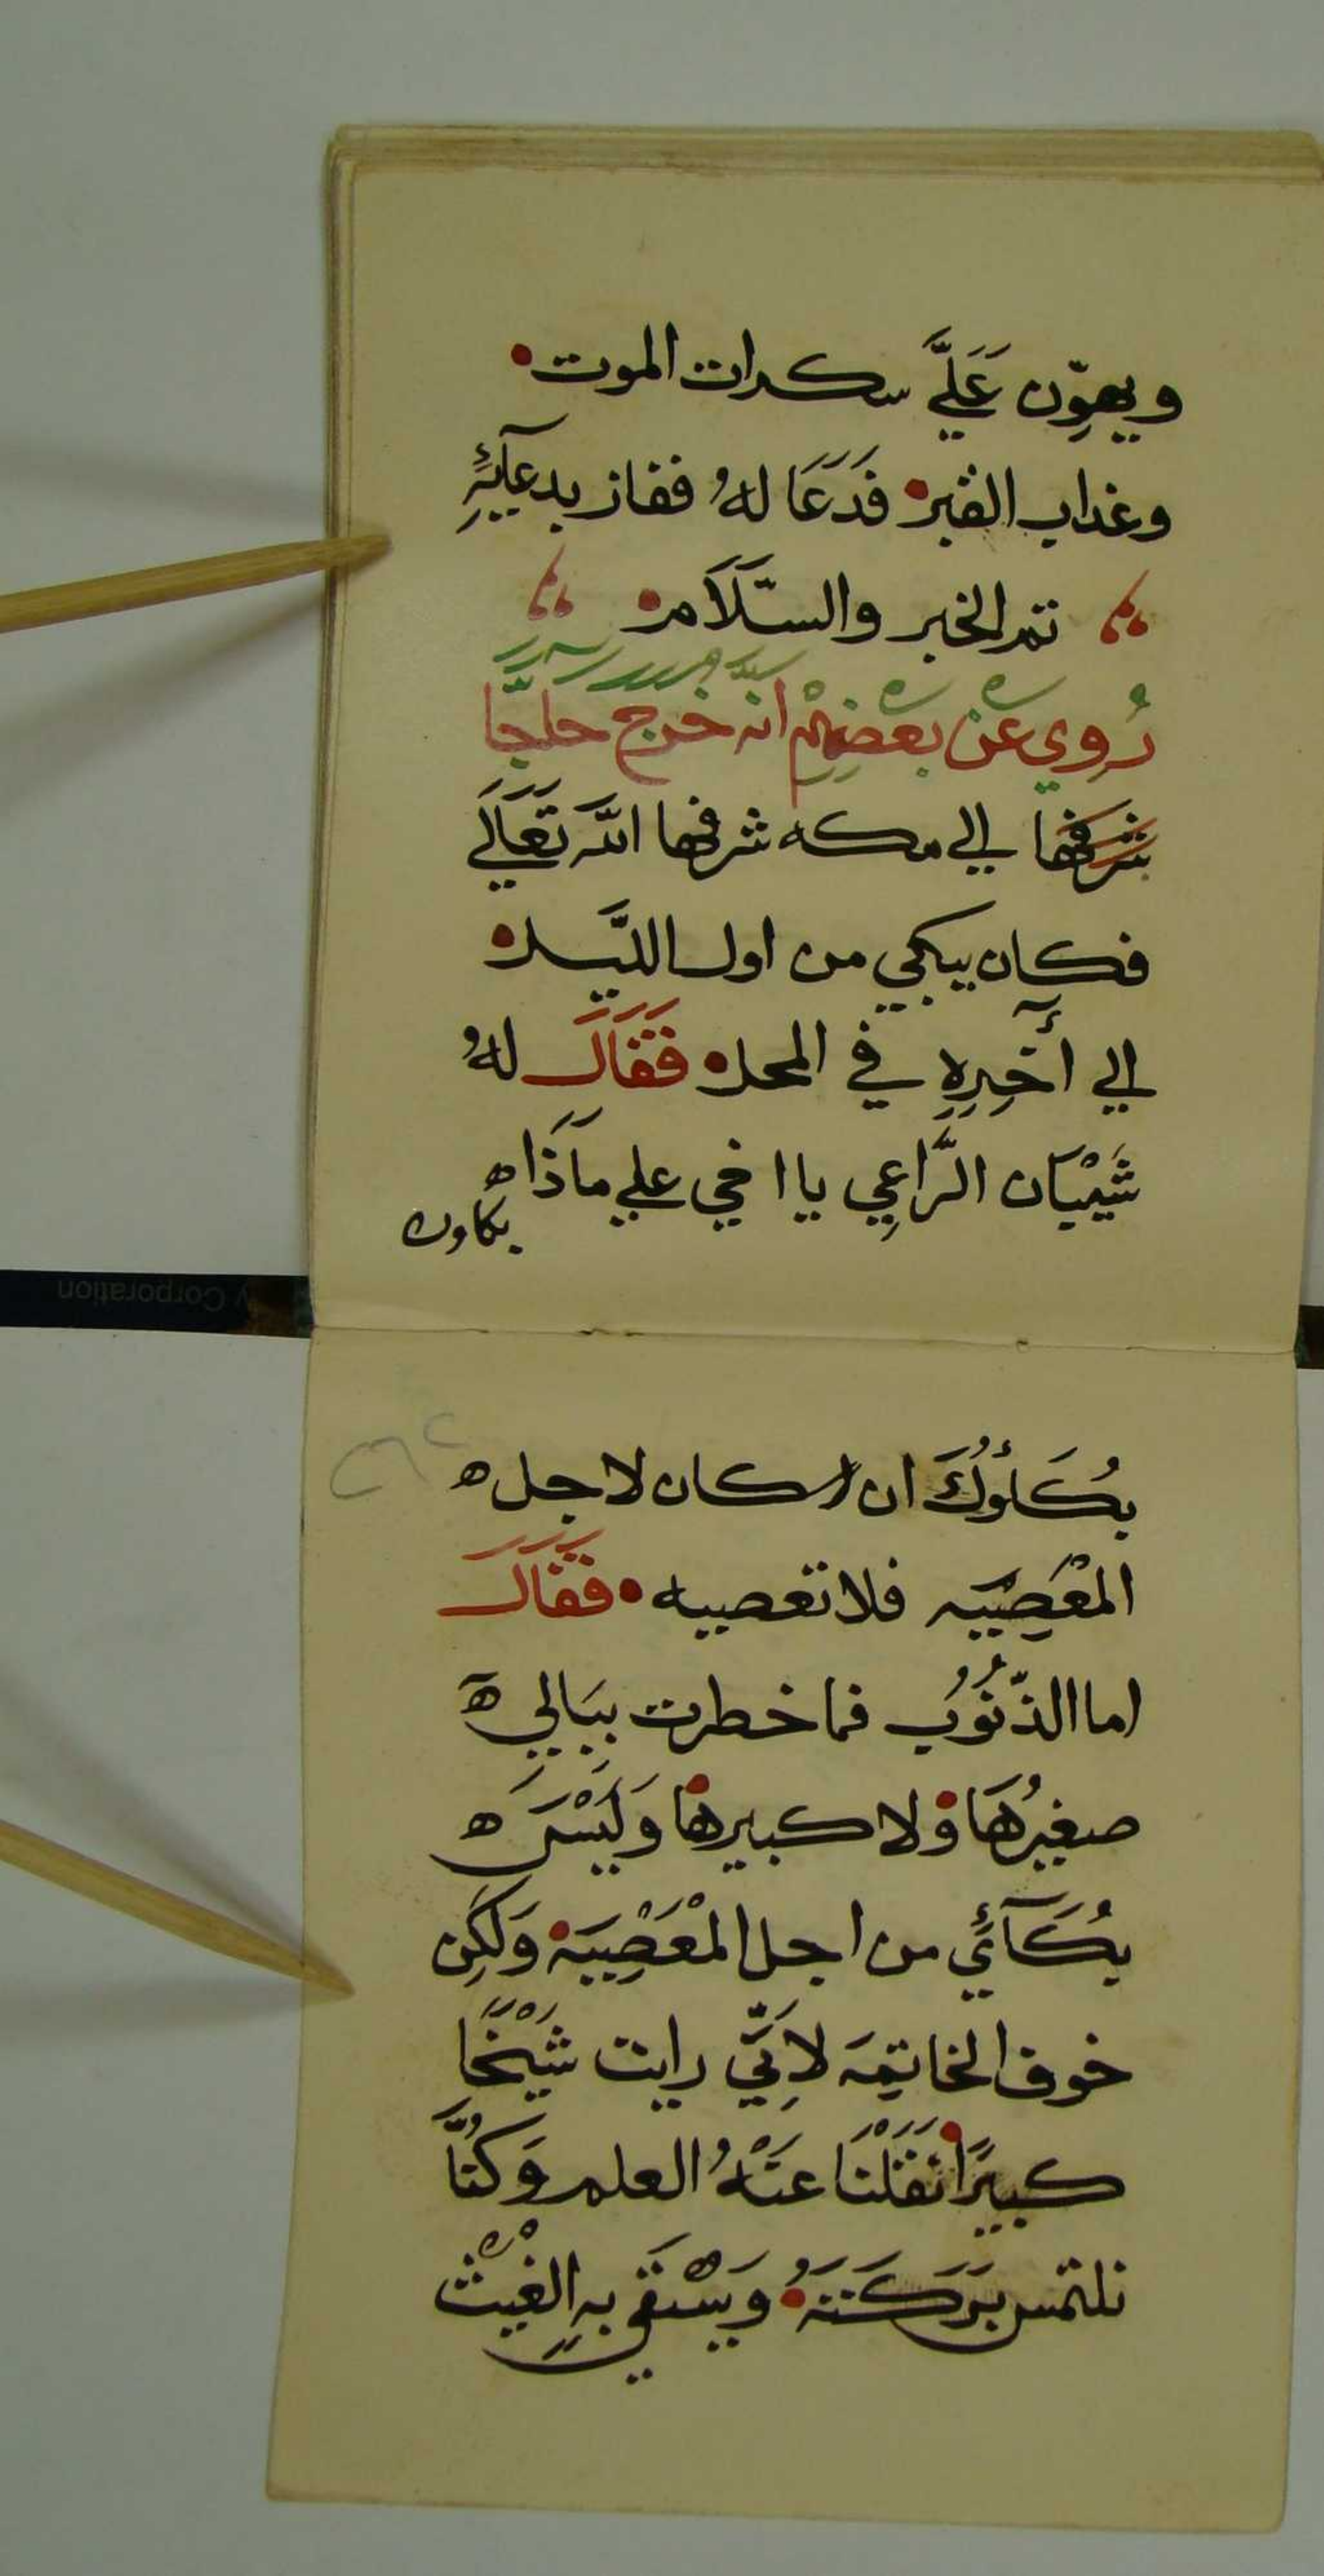 ويهوِّن عَلَيَّ سكرات الموت
وغداب القبر فَدَعَا لهُ ففاز بدعآئِهِ
تم الخبر والسَّلَام
رُوِي عن بعضِهمْ انه خرج حاجًّا
شرفها الي مكه شرفها الله تَعَالَي
فكان يبكي من اول اللَّيل
الي أخِرِهِ في المحل فَقَالَ لهُ
شَيْبَان الرَّاعِي يا اخي علي مَاذَا
بكاوك
بُكَاُؤكَ ان كان لاجل
المعْصِيَه فلا تعصيه فَقَالَ
اما الذّنُوُب فما خطرت بِبَالِي
صغيرُهَا ولا كبيرها وَلَيْسَ
بُكَآئِي من اجل المْعَصِيَة وَلَكِن
خوف الخاتِمَه لاِنِّي رايت شَيْخًا
كبيرًا نَقَلْنَا عَنْهُ العلم وَكنَّا
نلتمس بَرَكَتَهُ وَيسْتقَي بهِ الغيْث
y Corporation